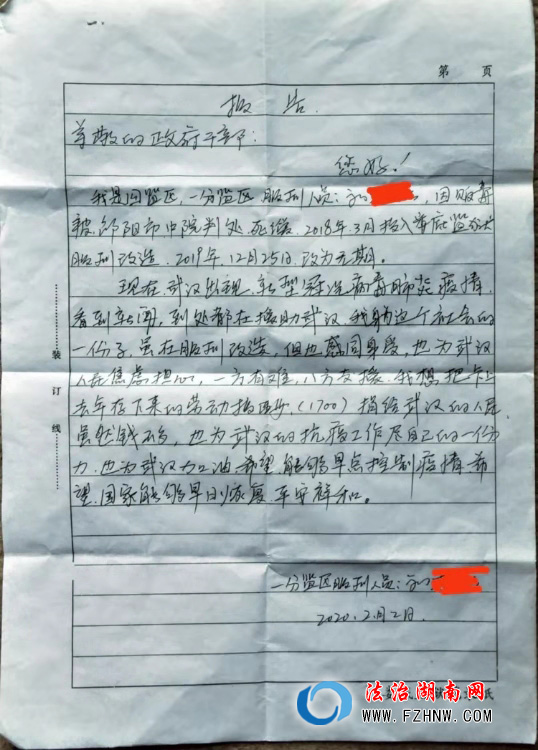 第 页
报 告
尊敬的政府干部:
您好!
我是四监区,一分监区服刑人员:,因贩毒
被邵阳市中院判处死缓.2018年3月投入娄底监狱
服刑改造.2019年12月25日改为无期。
现在武汉出现新型冠状病毒肺炎疫情,
看到新闻,到处都在援助武汉,我身这个社会的
一份子,虽在服刑改造,但也感同身受,也为武汉
人民焦虑担心,一方有难,八方支援.我想把卡上
去年存下来的劳动报酬,(1700)捐给武汉的人民
虽然钱不多,也为武汉的抗疫工作尽自己的一份
力.也为武汉加油.希望能够早点控制疫情.希
望国家能够早日恢复平安祥和。
一分监区服刑人员:
2020.2月2日.
装
订
线
法治湖南网
WWW.FZHNW.COM
纸